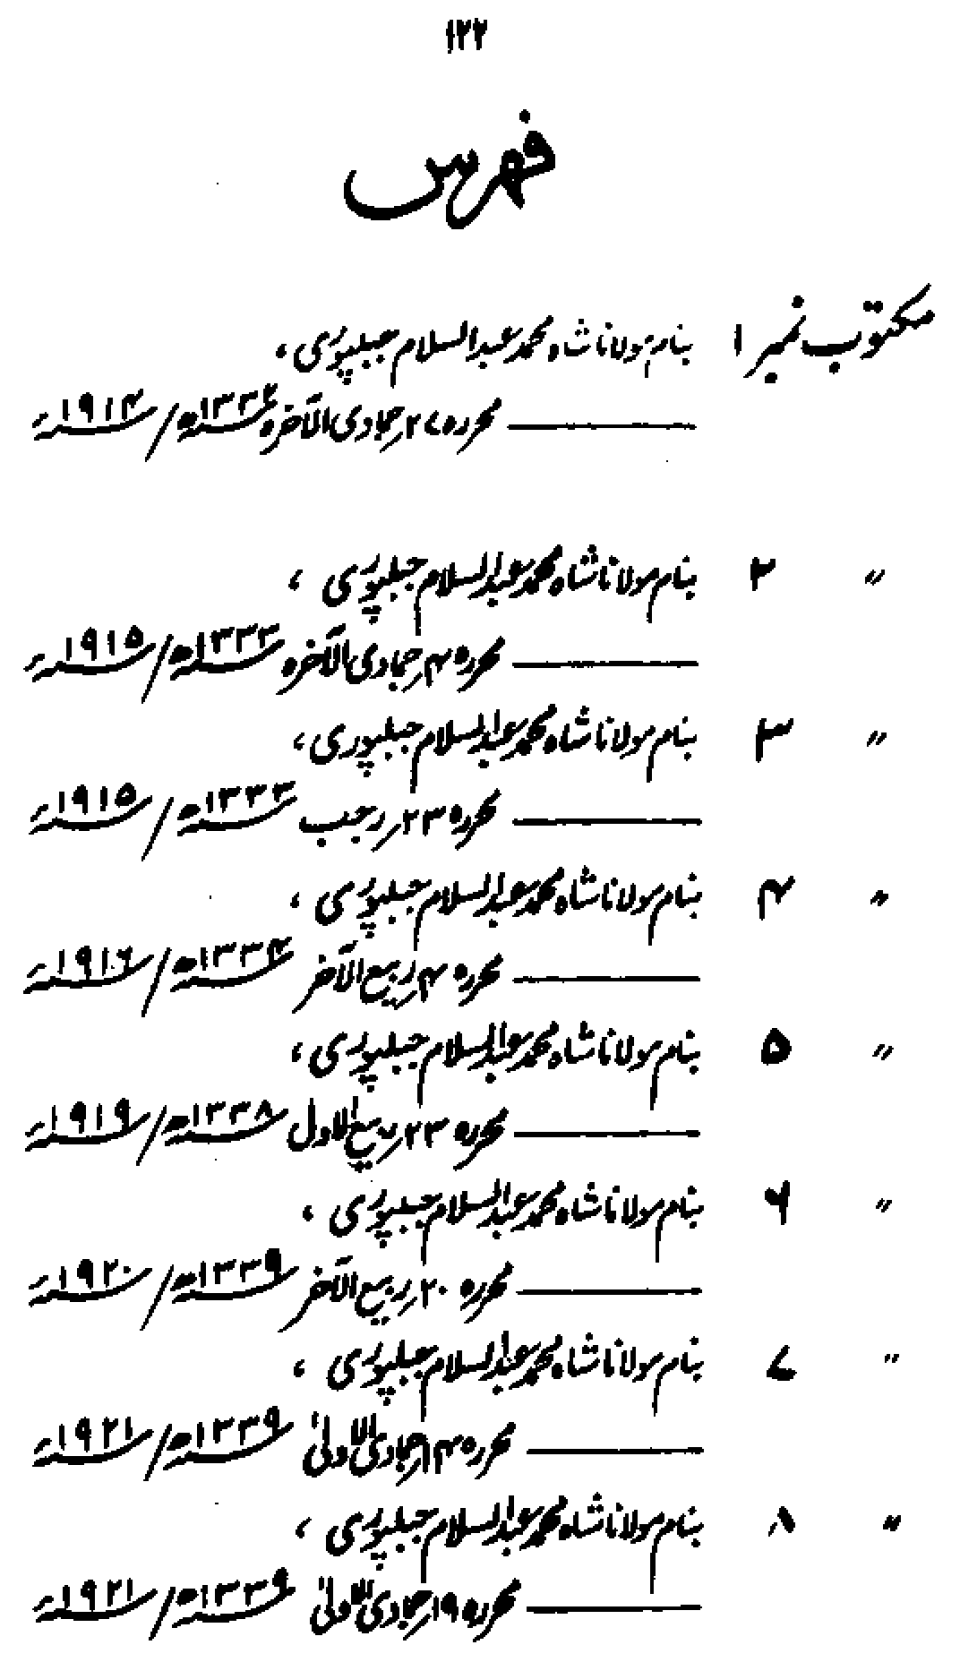 ۱۲۲
فہرس
مکتوب نمبر ۱ بنام مولانا شاہ محمد عبدالسلام جبلپوری،
محررہ ۲۷؍جمادی الآخرہ ۱۳۳۲ھ/۱۹۱۴ء
〃 ۲ بنام مولانا شاہ محمد عبدالسلام جبلپوری،
محررہ ۴؍جمادی الآخرہ ۱۳۳۳ھ/۱۹۱۵ء
〃 ۳ بنام مولانا شاہ محمد عبدالسلام جبلپوری،
محررہ ۲۳؍رجب ۱۳۳۳ھ/۱۹۱۵ء
〃 ۴ بنام مولانا شاہ محمد عبدالسلام جبلپوری،
محررہ ۴؍ربیع الآخر ۱۳۳۴ھ/۱۹۱۶ء
〃 ۵ بنام مولانا شاہ محمد عبدالسلام جبلپوری،
محررہ ۲۳؍ربیع الاول ۱۳۳۸ھ/۱۹۱۹ء
〃 ۶ بنام مولانا شاہ محمد عبدالسلام جبلپوری،
محررہ ۲۰؍ربیع الآخر ۱۳۳۹ھ/۱۹۲۰ء
〃 ۷ بنام مولانا شاہ محمد عبدالسلام جبلپوری،
محررہ ۱۴؍جمادی الاولیٰ ۱۳۳۹ھ/۱۹۲۱ء
〃 ۸ بنام مولانا شاہ محمد عبدالسلام جبلپوری،
محررہ ۱۹؍جمادی الاولیٰ ۱۳۳۹ھ/۱۹۲۱ء